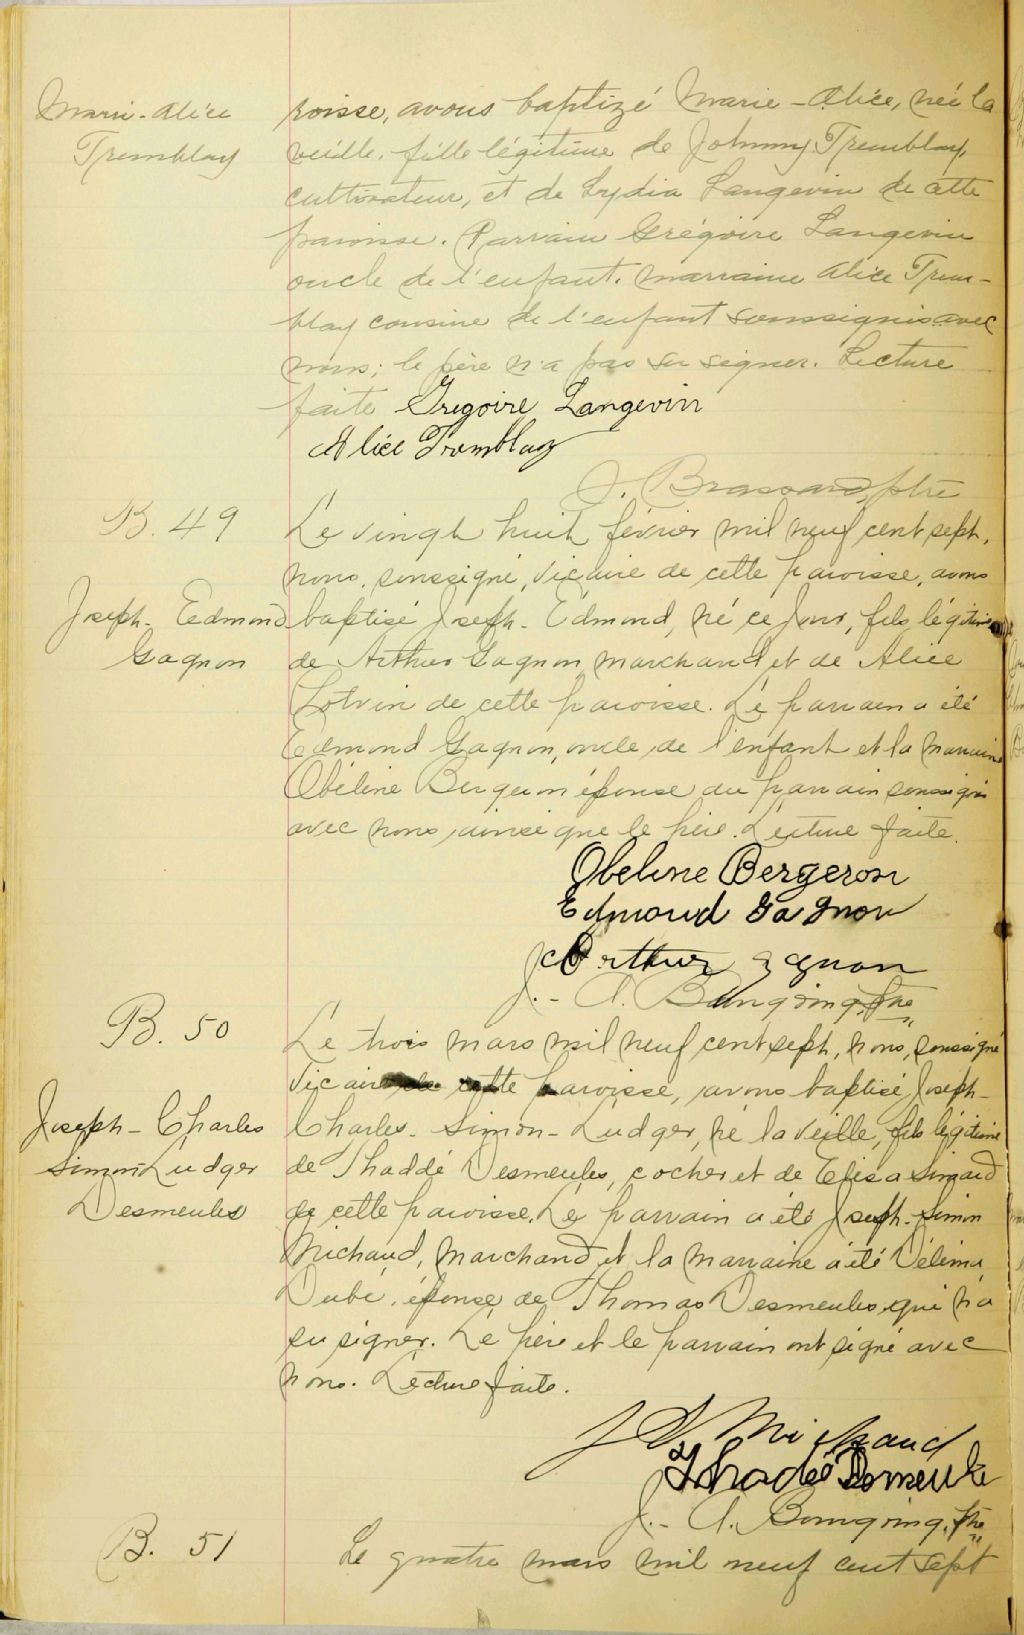 Marie-Alice
Tremblay
roisse, avons baptizé Marie-Alice, née la
veille, fille légitime de Johnny Tremblay,
cultivateur, et de Lydia Langevin de cette
paroisse. Parrain Grégoire Langevin
oncle de l'enfant. marraine Alice Trem-
blay cousine de l'enfant soussignés avec
nous; le père n'a pas su signer. Lecture
faite Gregoire Langevin
Alice Tremblay
J. Brassard, ptre
B. 49
Joseph-Edmond
Gagnon
Le vingt huit février mil neuf cent sept,
nous, soussigné, Vicaire de cette paroisse, avons
baptisé Joseph-Edmond, né ce jour, fils légitime
de Arthur Gagnon, marchand et de Alice
Potvin de cette paroisse. Le parrain a été
Edmond Gagnon, oncle de l'enfant et la marraine
Obéline Bergeron épouse du parrain soussignés
avec nous, ainsi que le père. Lecture faite.
Obeline Bergeron
Edmond Gagnon
Arthur Gagnon
J.-A. ptre
B. 50
Joseph-Charles
Simon-Ludger
Desmeules
Le trois mars mil neuf cent sept, nous, soussigné
Vicaire de cette paroisse, avons baptisé Joseph-
Charles-Simon-Ludger, né la veille, fils légitime
de Thaddé Desmeules, cocher et de Elisa Simard
de cette paroisse. Le parrain a été Joseph-Simon
Michaud, marchand et la marraine a été Délima
Dubé, épouse de Thomas Desmeules, qui n'a
su signer. Le père et le parrain ont signé avec
nous. Lecture faite.
J S Michaud
Thadé Desmeule
J.-A. ptre
B. 51
Le quatre mars mil neuf cent sept